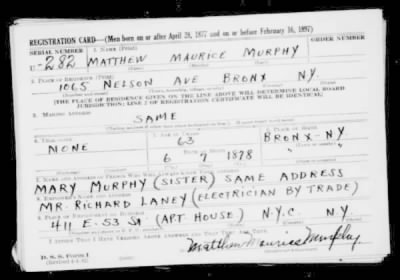 REGISTRATION CARD—(Men born on or after April 28, 1877 and on or before February 16, 1897)
SERIAL NUMBER 1. NAME (Print) ORDER NUMBER
U-282 MATTHEW MAURICE MURPHY
(First) (Middle) (Last)
2. PLACE OF RESIDENCE (Print)
1065 NELSON AVE BRONX N.Y.
[THE PLACE OF RESIDENCE GIVEN ON THE LINE ABOVE WILL DETERMINE LOCAL BOARD
JURISDICTION; LINE 2 OF REGISTRATION CERTIFICATE WILL BE IDENTICAL]
3. MAILING ADDRESS
SAME
4. TELEPHONE 5. AGE IN YEARS 6. PLACE OF BIRTH
NONE 63 BRONX-NY
6 7 1878 " "
7. NAME AND ADDRESS OF PERSON WHO WILL ALWAYS KNOW YOUR ADDRESS
MARY MURPHY (SISTER) SAME ADDRESS
8. EMPLOYER'S NAME AND ADDRESS
MR. RICHARD LANEY (ELECTRICIAN BY TRADE)
9. PLACE OF EMPLOYMENT OR BUSINESS
411 E-53 St (APT. HOUSE) N.Y.C. NY
I AFFIRM THAT I HAVE VERIFIED ABOVE ANSWERS AND THAT THEY ARE TRUE.
D. S. S. Form 1
(Revised 4-1-42)
Matthew Maurice Murphy